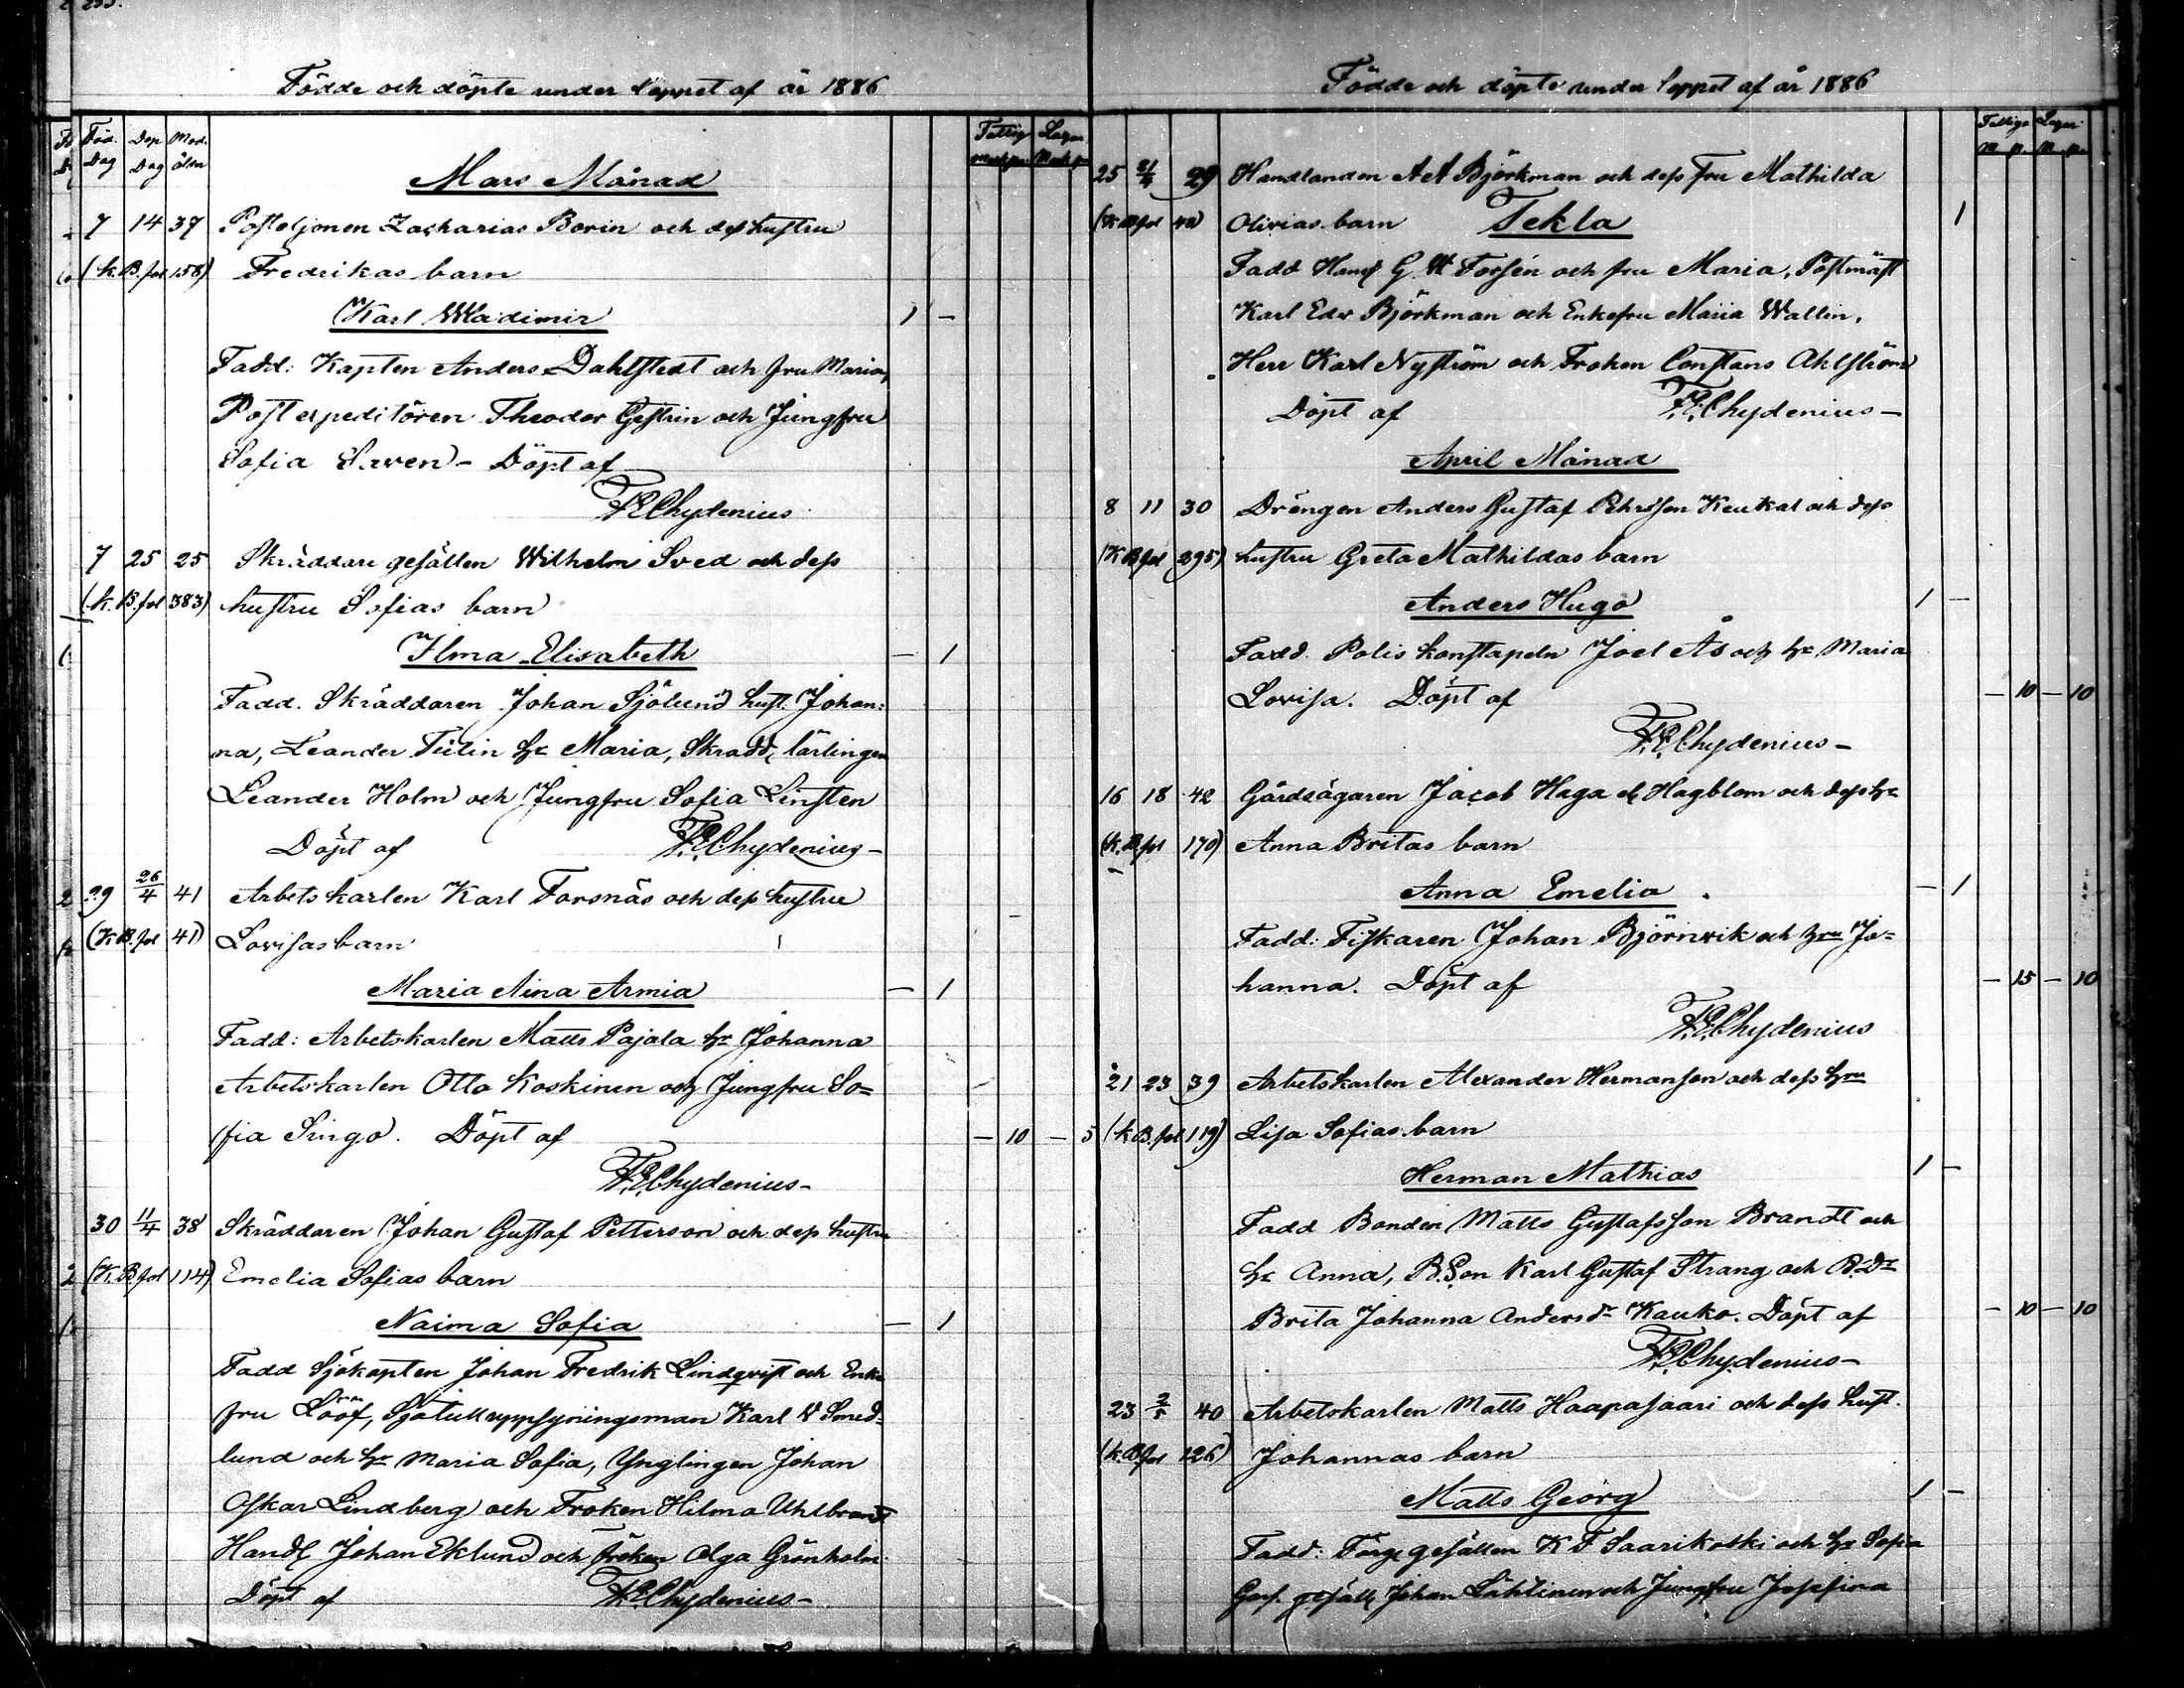 Födde och döpte under loppet af år 1886
Föd. Dag Döp Dag Mod. ålder
Fattig Lazar.
Mars Månad
7 14 37 Posteljonen Zacharias Borin och dess hustru
(K.B. fol 158) Fredrikas barn
Karl Wladimir 1 —
Fadd: Kapten Anders Dahlstedt och fru Maria,
Postexpeditören Theodor Gestrin och Jungfru
Sofia Saren - Döpt af
F.E. Chydenius
7 25 25 Skräddare gesällen Wilhelm Sved och dess
(K.B. fol 383) hustru Sofias barn
Ilma Elisabeth — 1
Fadd. Skräddaren Johan Sjölund hust. Johan=
na, Leander Tulin hu Maria, Skradd. lärlingen
Leander Holm och Jungfru Sofia Linsten
Döpt af F.E. Chydenius —
29 26/4 41 Arbetskarlen Karl Forsnäs och dess hustru
(K.B. fol 41) Lovisas barn
Maria Aina Armia — 1
Fadd: Arbetskarlen Matts Pajala hu Johanna
Arbetskarlen Otto Koskinen och Jungfru So=
fia Singo. Döpt af — 10 — 5
F.E. Chydenius —
30 11/4 38 Skräddaren Johan Gustaf Petterson och dess hustru
(K.B. fol 114) Emelia Sofias barn
Naima Sofia — 1
Fadd Sjökapten Johan Fredrik Lindqvist och Enke
fru Lööf, Sjötulluppsyningsman Karl W Smed=
lund och hu Maria Sofia, Ynglingen Johan
Oskar Lindberg och Fröken Hilma Uhlbrandt
Handl Johan Eklund och fröken Olga Grönholm.
Döpt af F.E. Chydenius —
Födde och döpte under loppet af år 1886
Fattiga Lazar.
m p. m p.
25 21/4 29 Handlanden A A Björkman och dess Fru Mathilda
(K B fol 42) Olivias barn Tekla 1
Fadd Handl G. W Forsén och fru Maria, Postmäst
Karl Edv Björkman och Enkefru Maria Wallin,
Herr Karl Nyström och Froken Constans Ahlström
Döpt af F.E. Chydenius —
April Månad
8 11 30 Drängen Anders Gustaf Pehrsson Keukal och dess
(K B fol 295) hustru Greta Mathildas barn
Anders Hugo 1 —
Fadd. Polis konstapeln Joel Ås och hu Maria
Lovisa. Döpt af — 10 — 10
F.E. Chydenius —
16 18 42 Gårdsägaren Jacob Haga el Hagblom och dess hu
(K.B. fol 170) Anna Britas barn
Anna Emelia — 1
Fadd: Fiskaren Johan Björnvik och hru Jo=
hanna. Döpt af — 15 — 10
F.E. Chydenius
21 23 39 Arbetskarlen Alexander Hermanson och dess hru
(K B. fol 119) Lisa Sofias barn
Herman Mathias 1 —
Fadd Bonden Matts Gustafsson Brandt och
hu Anna, B.Son Karl Gustaf Strang och B.Dr
Brita Johanna Andersdr Kauko. Döpt af — 10 — 10
F.E. Chydenius —
23 2/5 40 Arbetskarlen Matts Haapasaari och dess hust.
(K.B. fol 126) Johannas barn
Matts Georg 1 —
Fadd: Färg gesällen K F Saarikoski och hu Sofia
Garf. gesäll Johan Lähtinen och Jungfru Josefina